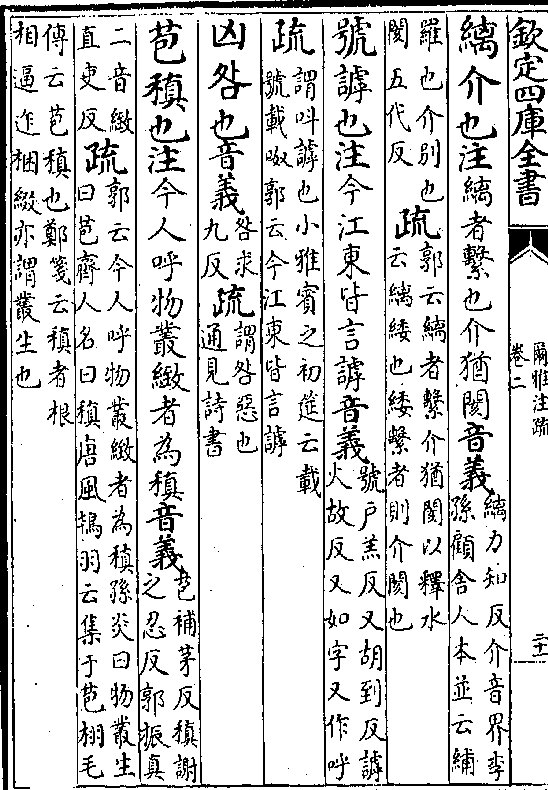 欽定四庫全書
爾雅注疏
卷二
二十一
縭介也注縭者繫也介猶閡音義縭力知反介音界李
孫顧舍人本並云縭
羅也介别也疏郭云縭者繫介猶閡以釋水
閡五代反云縭緌也緌繫者則介閡也
號謼也注今江東皆言謼音義號戶羔反又胡到反謼
火故反又如字又作呼
疏謂叫謼也小雅賓之初筵云載
號載呶郭云今江東皆言謼
凶咎也音義咎求
九反疏謂咎惡也
通見詩書
苞稹也注今人呼物叢緻者為稹音義苞補茅反稹謝
之忍反郭振真
二音緻
直吏反疏郭云今人呼物叢緻者為稹孫炎曰物叢生
曰苞齊人名曰稹唐風鴇羽云集于苞栩毛
傳云苞稹也鄭箋云稹者根
相逼迮梱緻亦謂叢生也